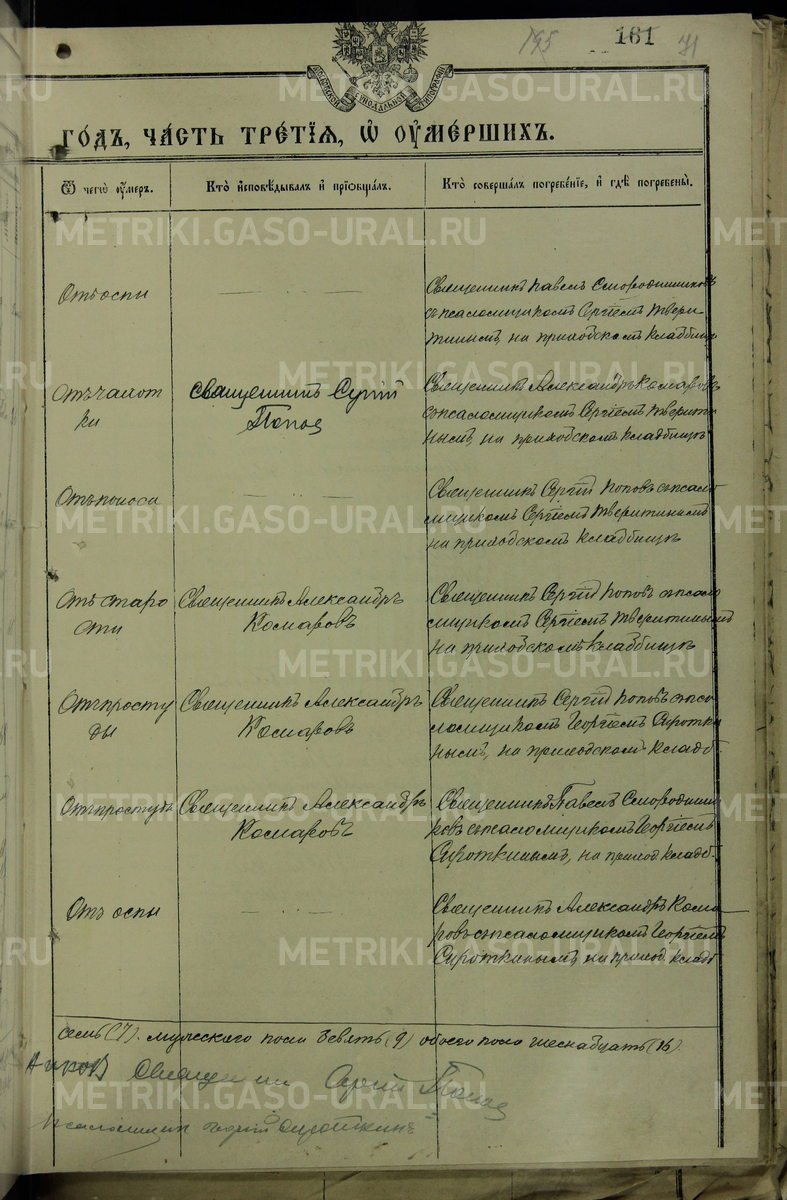 195 161 71
МОСКОВСКОЙ СѴНОДАЛЬНОЙ ТИПОГРАФІИ
ГО́ДЪ, ЧА́СТЬ ТРЕ́ТЇѦ, Ѡ҆ ОУ҆МЕ́РШИХЪ.
Ѿ чегѡ̀ оу҆́мер.
Кто̀ и҆сповѣ́дывалъ и҆ прїѡбща́лъ.
Кто̀ соверша́лъ погребе́нїе, и҆ гдѣ̀ погребены̀.
Отъ оспы
Священникъ Павелъ Смородинниковъ
съ псаломщикомъ Сергіемъ Твери-
тинымъ, на приходскомъ кладбищѣ
Отъ чахот
ки
Священникъ Сергій
Попов
Священникъ Александръ Комаровъ
съ псаломщикомъ Сергіемъ Тверити
нымъ, на приходскомъ кладбищѣ
Отъ поноса
Священникъ Сергій Поповъ съ псало
мщикомъ Сергіемъ Тверитинымъ
на приходскомъ кладбищѣ
Отъ старо
сти
Священникъ Александръ
Комаровъ
Священникъ Сергій Поповъ съ псало
мщикомъ Сергіемъ Тверитинымъ
на приходскомъ кладбищѣ
Отъ просту
ды
Священникъ Александръ
Комаровъ
Священникъ Сергій Поповъ съ пса
ломщикомъ Георгіемъ Сиротки
нымъ, на приходскомъ кладб.
Отъ простуды
Священникъ Александръ
Комаровъ
Священникъ Павелъ Смородинни
ковъ съ псаломщикомъ Георгіемъ
Сироткинымъ, на приход. кладб.
Отъ оспы
Священникъ Александръ Кома
ровъ съ псаломщикомъ Георгіемъ
Сироткинымъ, на приход. кладб.
семь (7). мужескаго пола девять (9) обоего пола шестнадцать (16).
Священник Сергій Попов
Псаломщик Георгій Сироткинъ
METRIKI.GASO-URAL.RU